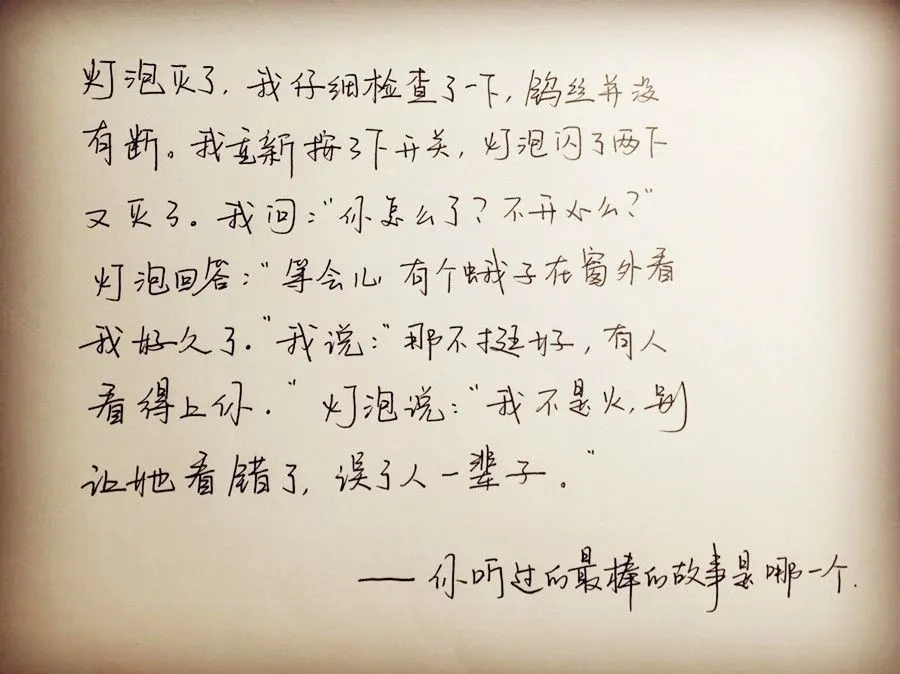 灯泡灭了，我仔细检查了一下，钨丝并没
有断。我重新按了下开关，灯泡闪了两下
又灭了。我问：“你怎么了？不开心么？”
灯泡回答：“等会儿 有个蛾子在窗外看
我好久了.”我说：“那不挺好，有人
看得上你.”灯泡说：“我不是火，别
让她看错了，误了人一辈子。”
——你听过的最棒的故事是哪一个.